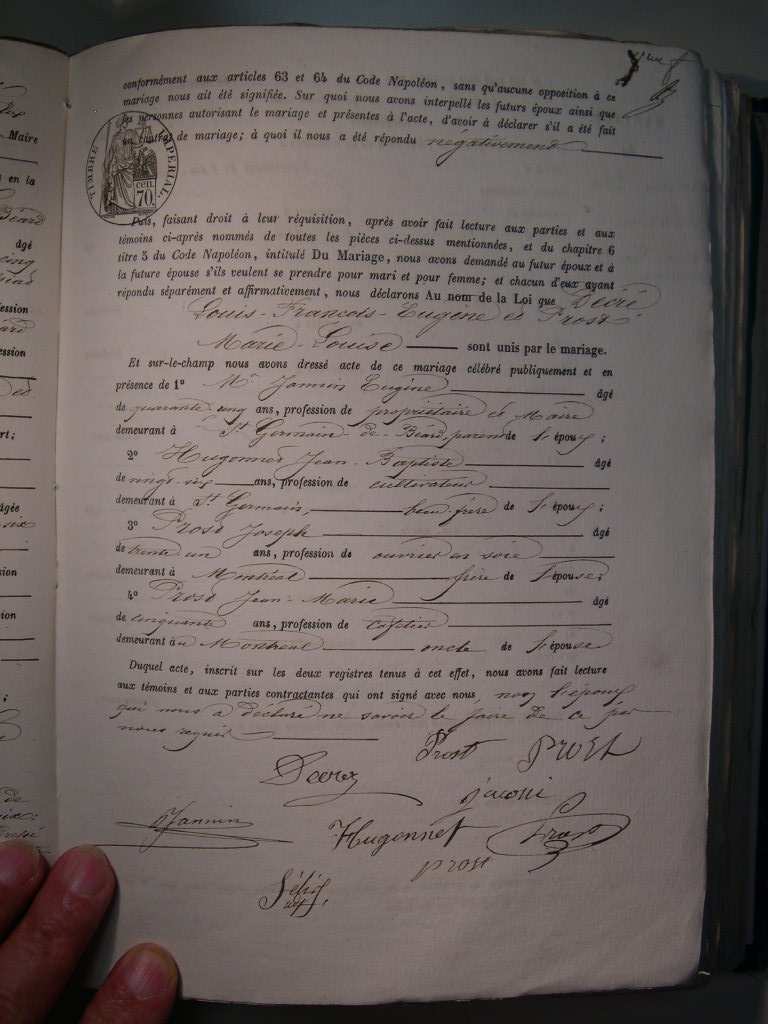 conformément aux articles 63 et 64 du Code Napoléon, sans qu'aucune opposition à ce
mariage nous ait été signifiée. Sur quoi nous avons interpellé les futurs époux ainsi que
les personnes autorisant le mariage et présentes à l'acte, d'avoir à déclarer s'il a été fait
un contrat de mariage; à quoi il nous a été répondu négativement
TIMBRE IMPÉRIAL
70
Puis, faisant droit à leur réquisition, après avoir fait lecture aux parties et aux
témoins ci-après nommés de toutes les pièces ci-dessus mentionnées, et du chapitre 6
titre 5 du Code Napoléon, intitulé Du Mariage, nous avons demandé au futur époux et à
la future épouse s'ils veulent se prendre pour mari et pour femme; et chacun d'eux ayant
répondu séparément et affirmativement, nous déclarons Au nom de la Loi que
Louis-François-Eugène et Prost
Marie-Louise sont unis par le mariage.
Et sur-le-champ nous avons dressé acte de ce mariage célébré publiquement et en
présence de 1° Mr Jannin Eugène âgé
de quarante cinq ans, profession de propriétaire et Maire
demeurant à St Germain-de-Béard, parent de l'époux;
2° Hugonnet Jean-Baptiste âgé
de vingt-six ans, profession de cultivateur
demeurant à St Germain, beau frère de l'époux;
3° Prost Joseph âgé
de trente un ans, profession de ouvrier en soie
demeurant à Montréal frère de l'épouse;
4° Prost Jean-Marie âgé
de cinquante ans, profession de
demeurant à Montréal oncle de l'épouse
Duquel acte, inscrit sur les deux registres tenus à cet effet, nous avons fait lecture
aux témoins et aux parties contractantes qui ont signé avec nous, non l'époux
qui nous a déclaré ne savoir le faire de ce par
nous requis
Prost Prost
Jannin
Hugonnet Prost
prost